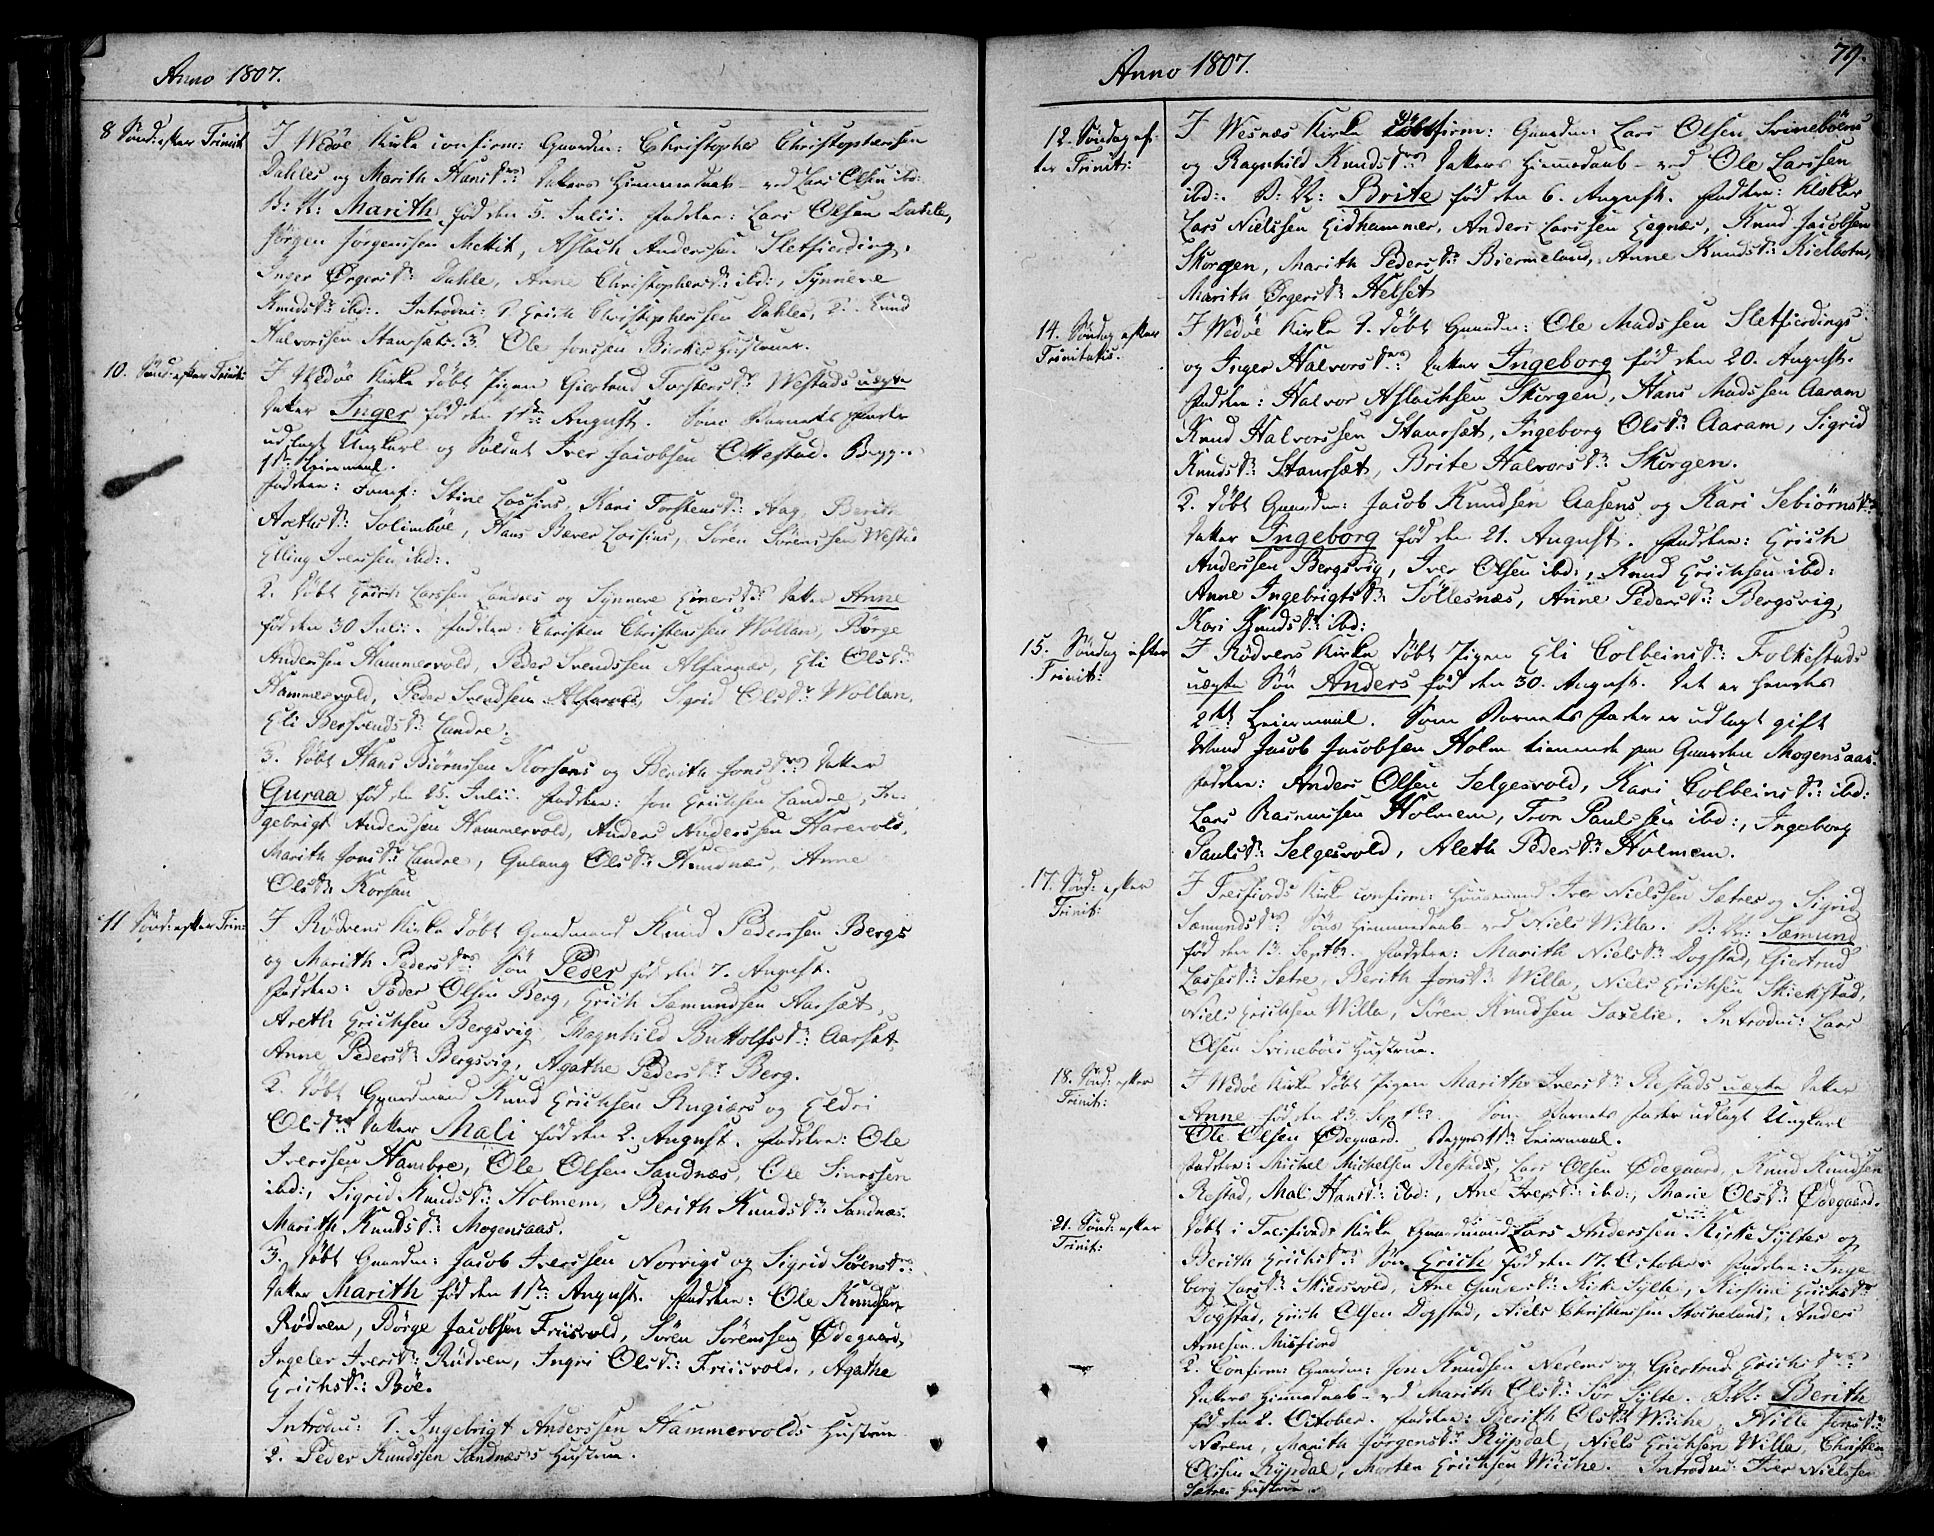 Anno 1807.
8 Sönd: efter Trinit
I Wedöe Kirke confirm: Gaardm: Christopher Christophersen
Dahles og Marith Hansdr: Datters Hiemmedaab - ved Lars Olsen ibd:
B: N: Marith, fød den 5. Julii. Faddere: Lars Olsen Dahle,
Jørgen Jørgenssen Mekit, Aslach Anderssen Sletfierding,
Inger Ørgersdr: Dahle, Anne Christophersdr: ibd:, Synneve
Knudsdr: ibd:. Introdu: 1. Erich Christophersen Dahles, 2. Knud
Halvorssen Staursæts. 3. Ole Jonssen Hustruer.
10. Sönd: efter Trinit:
I Wedöe Kirke døbt Pigen Giertrud Torstensdr: Westads uægte
Datter Inger fød den 1ste August. Som Barnets Fader
udlagt Ungkarl og Soldat Iver Jacobsen Ekestad. Begges
1ste Leiermaal.
Faddere: Jomf: Stine Lossius, Kari Torstensdr: Hag, Berith
Arethsdr: Solimböe, Hans Bæver Lossius, Sören Sörenssen Westad
Elling Iverssen ibd:.
2. Døbt Erich Larssen Landres og Synneve Einersdr: Datter Anne
fød den 30 Julii. Faddere: Christen Christenssen Wollan, Börge
Andersen Hammervold, Peder Svendssen Alfarnæs, Eli Olsdr:
Hammervold, Peder Svendsen Alfarnes, Sigrid Olsdr: Wollan,
Eli Bersvendsdr: Landre.
3. Døbt Hans Biörnssen Korsens og Berith Jonsdr: Datter
Guraa fød den 25. Julii. Faddere: Jon Erichsen Landre, In-
gebrigt Andersen Hammervold, Anders Anderssen Harevold,
Marith Jonsdr: Landre, Gulaug Olsdr: Hundnæs, Anne
Olsdr: Korsen
11 Sönd: efter Trin:
I Rödvens Kirke døbt Gaardmand Knud Pederssen Bergs
og Marith Pedersdr: Søn Peder fød den 7. August.
Faddere: Peder Olsen Berg, Erich Sæmundsen Aarsæt,
Areth Erichsen Bergsvig, Magnhild Buttolfsdr: Aarsæt,
Anne Pedersdr: Bergsvig, Agathe Pedersdr: Berg.
2. Døbt Gaardmand Knud Erichsen Rugiærs og Eldri
Olsdr: Datter Mali fød den 2. August. Faddere: Ole
Iverssen Hambre, Ole Olsen Sandnæs, Ole
ibd:, Sigrid Knudsdr: Holmem, Berith Knudsdr: Sandnæs.
Marith Knudsdr: Mogensaas.
3. Døbt Gaardm: Jacob Iverssen Norvigs og Sigrid Sörensdr:
Datter Marith fød den 11te August. Faddere: Ole Knudsen
Rödven, Börge Jacobsen Friisvold, Sören Sörenssen Ødegaard,
Ingeler Iversdr: Rödven, Ingri Olsdr: Friisvold, Agathe
Erichsdr: Böe.
Introdu: 1. Ingebrigt Anderssen Hammervolds Hustrue
2. Peder Knudssen Sandnæs's Hustrue.
Anno 1807.
79.
12. Söndag ef-
ter Trinit:
I Wesnæs Kirke confirm: Gaardm: Lars Olsen Svinebölens
og Ragnhild Knudsdr: Datters Hiemmedaab - ved Ole Larssen
ibd:. B: N: Brite fød den 6. August. Faddere: Klokker
Lars Nielssen Eidhammer, Anders Larssen Hagnæs, Knud Jacobsen
Skorgen, Marith Pedersdr: Biermeland, Anne Knudsdr: Kielbotn,
Marith Ørgersdr: Helset
14. Söndag efter
Trinitatis.
I Wedöe Kirke 1. Døbt Gaardm: Ole Madssen Sletfierdings
og Inger Halvorsdr: Datter Ingeborg fød den 20. August.
Faddere: Halvor Aslachsen Skorgen, Hans Madssen Aaram
Knud Halvorssen Staursæt, Ingeborg Olsdr: Aaram, Sigrid
Knudsdr: Staursæt, Brite Halvorsdr: Skorgen.
2. Døbt Gaardm: Jacob Knudsen Aasens og Kari Sebiörnsdr:
Datter Ingeborg fød den 21. August. Faddere: Erich
Anderssen Bergsvig, Iver Olsen ibd:, Knud Erichsen ibd:
Anne Ingebrigtsdr: Söllesnæs, Anne Pedersdr: Bergsvig,
Kari Knudsdr: ibd:
15. Söndag efter
Trinit:
I Rödvens Kirke døbt Pigen Eli Colbeinsdr: Folkestads
uægte Søn Anders fød den 30. August. Det er hendes
2det Leiermaal. Som Barnets Fader er udlagt gift
Mand Jacob Jacobsen Holm tienende paa Gaarden Mogensaas.
Faddere: Anders Olsen Selgesvold, Kari Colbeinsdr: ibd:
Lars Rasmusen Holmem, Tron Paulssen ibd:, Ingeborg
Paulsdr: Selgesvold, Aleth Pedersdr: Holmem.
17. Sönd: efter
Trinit:
I Tresfiords Kirke confirm: Huusmand Iver Nielssen Sætres og Sigrid
Sæmundsdr: Söns Hiemmedaab - ved Niels Willa. B: N: Sæmund
fød den 13. Septbr. Faddere: Marith Nielsdr: Dogstad, Giertrud
Lassesdr: Sætre, Berith Jonsdr: Willa, Niels Erichsen Skiekstad,
Niels Erichsen Willa, Sören Knudsen Saxelie. Introdu: Lars
Olsen Svineböls Hustrue.
18. Sönd: efter
Trinit:
I Wedöe Kirke døbt Pigen Marithe Iversdr: Restads uægte Datter
Anne fød den 23. Septbr. Som Barnets Fader udlagt Ungkarl
Ole Olsen Ødegaard. Begges 1ste Leiermaal.
Faddere: Michel Michelsen Restad, Lars Olsen Ødegaard, Knud Knudsen
Restad, Mali Hansdr: ibd:, Ane Iversdr: ibd:, Marie Olsdr: Ødegaard.
21. Sönd: efter
Trinit:
Døbt i Tresfiords Kirke Gaardmand Lars Anderssen Kirke Syltes og
Berith Erichsdr: Søn Erich fød den 17. October. Faddere: Inge
borg Larsdr: Skiersvold, Ane Gunersdr: Kirke Sylte, Kirstine Erichsdr:
Dogstad, Erich Olsen Dogstad, Niels Christenssen Skeieland, Anders
Arnesen Misfiord
2. Confirm: Gaardm: Jon Knudsen Nerems og Giertrud Erichsdr:
Datters Hiemmedaab - ved Marith Olsdr: Sör Sylte. B: N: Berith
fød den 2. October. Faddere: Berith Olsdr: Wiche, Nille Jonsdr:
Nærem, Marith Jörgensdr: Rypdal, Niels Erichsen Willa, Christen
Olssen Rypdal, Morten Erichsen Wiche. Introdu: Iver Nielssen
Sætres Hustrue.